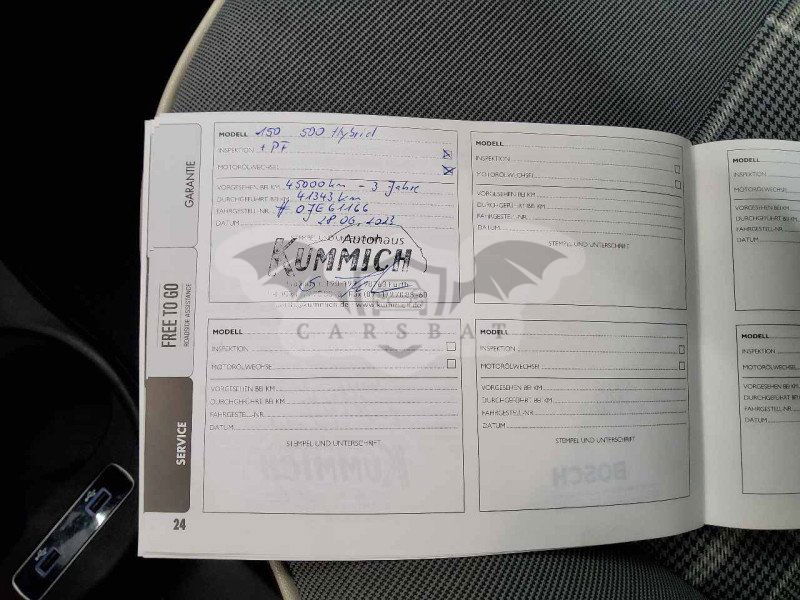 GARANTIE
FREE TO GO
ROADSIDE ASSISTANCE
SERVICE
24
MODELL 150 500 Hybrid
INSPEKTION + PF
MOTORÖLWECHSEL
VORGESEHEN BEI KM 45000 km - 3 Jahre
DURCHGEFÜHRT BEI KM 41343 km
FAHRGESTELL-NR. # 07E61166
DATUM 28.06.2023
Autohaus
KUMMICH
MODELL
INSPEKTION
MOTORÖLWECHSEL
VORGESEHEN BEI KM
DURCHGEFÜHRT BEI KM
FAHRGESTELL-NR.
DATUM
STEMPEL UND UNTERSCHRIFT
MODELL
INSPEKTION
MOTORÖLWECHSEL
VORGESEHEN BEI KM
DURCHGEFÜHRT BEI KM
FAHRGESTELL-NR.
DATUM
STEMPEL UND UNTERSCHRIFT
MODELL
INSPEKTION
MOTORÖLWECHSEL
VORGESEHEN BEI KM
DURCHGEFÜHRT BEI KM
FAHRGESTELL-NR.
DATUM
STEMPEL UND UNTERSCHRIFT
MODELL
INSPEKTION
MOTORÖLWECHSEL
VORGESEHEN BEI KM
DURCHGEFÜHRT
FAHRGESTELL-NR.
DATUM
MODELL
INSPEKTION
MOTORÖLWECHSEL
VORGESEHEN BEI
DURCHGEFÜHRT
FAHRGESTELL-NR.
DATUM
CARSBAT